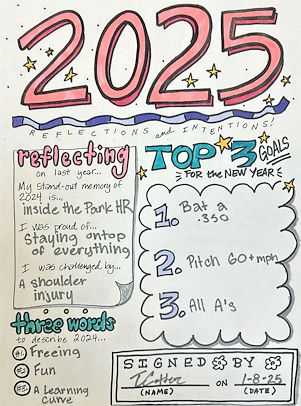 2025
REFLECTIONS and INTENTIONS!
reflecting
on last year...
My stand-out memory of
2024 is...
inside the Park HR
I was proud of...
Staying ontop
of everything
I was challenged by...
A shoulder
injury
three words
to describe 2024...
#1. Freeing
#2. Fun
#3. A Learning
curve
TOP 3 GOALS
FOR the NEW YEAR
1. Bat a
.350
2. Pitch 60+mph
3. All A's
SIGNED BY
ON 1-8-25
(NAME) (DATE)